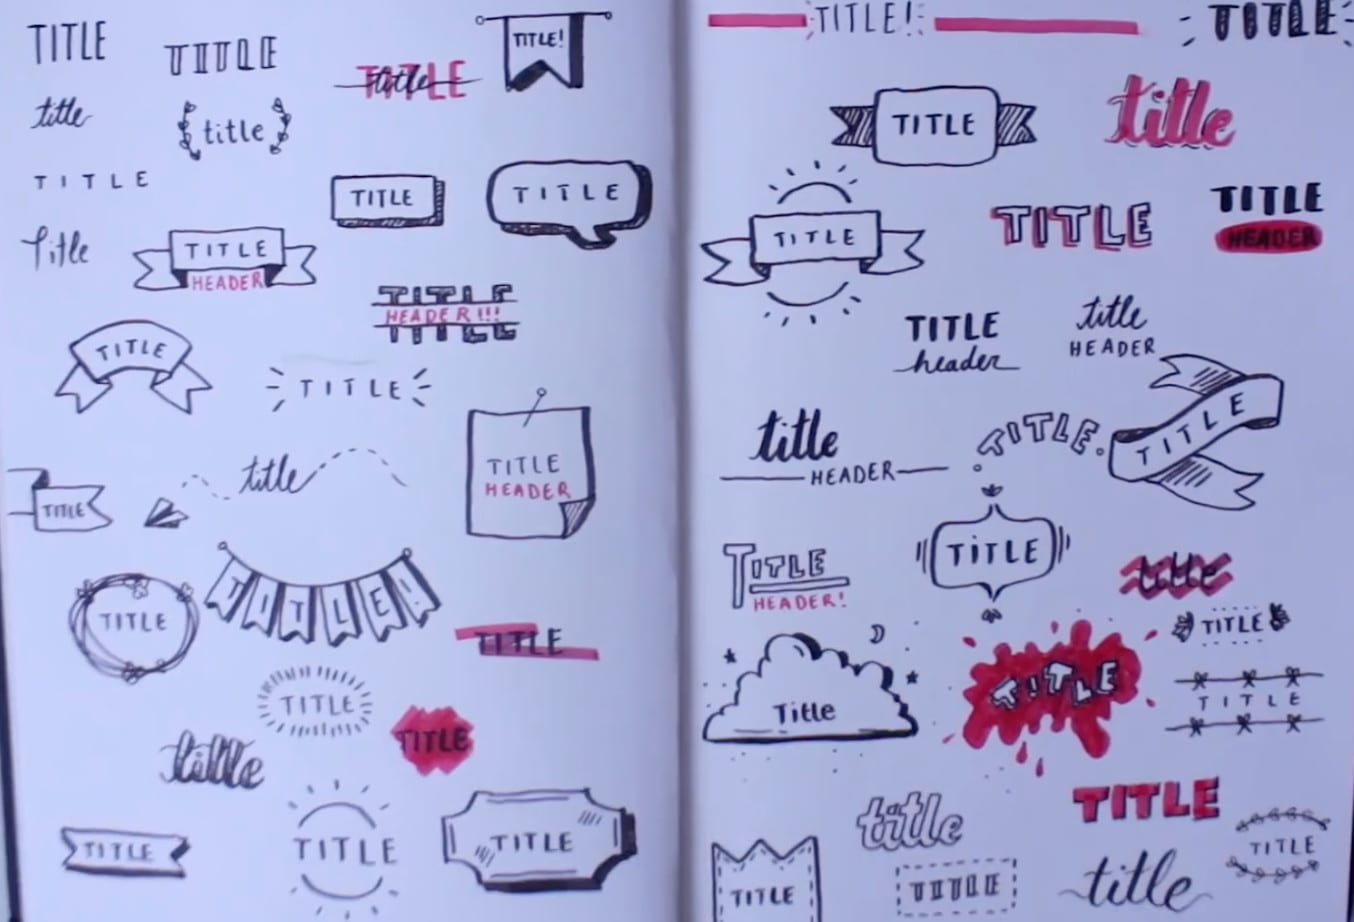 TITLE
TITLE
title
TITLE
TITLE!
title
title
TITLE
TITLE
TITLE
Title
TITLE
HEADER
TITLE
HEADER!!!
TITLE
TITLE
title
TITLE
HEADER
TITLE
TITLE
TITLE!
TITLE
TITLE
TITLE
title
TITLE
TITLE
TITLE
TITLE!
TITLE
TITLE
title
TITLE
TITLE
TITLE
HEADER
TITLE
header
title
HEADER
title
HEADER
TITLE
TITLE
TITLE
HEADER!
TITLE
title
TITLE
Title
TITLE
TITLE
title
TITLE
TITLE
TITLE
TITLE
title